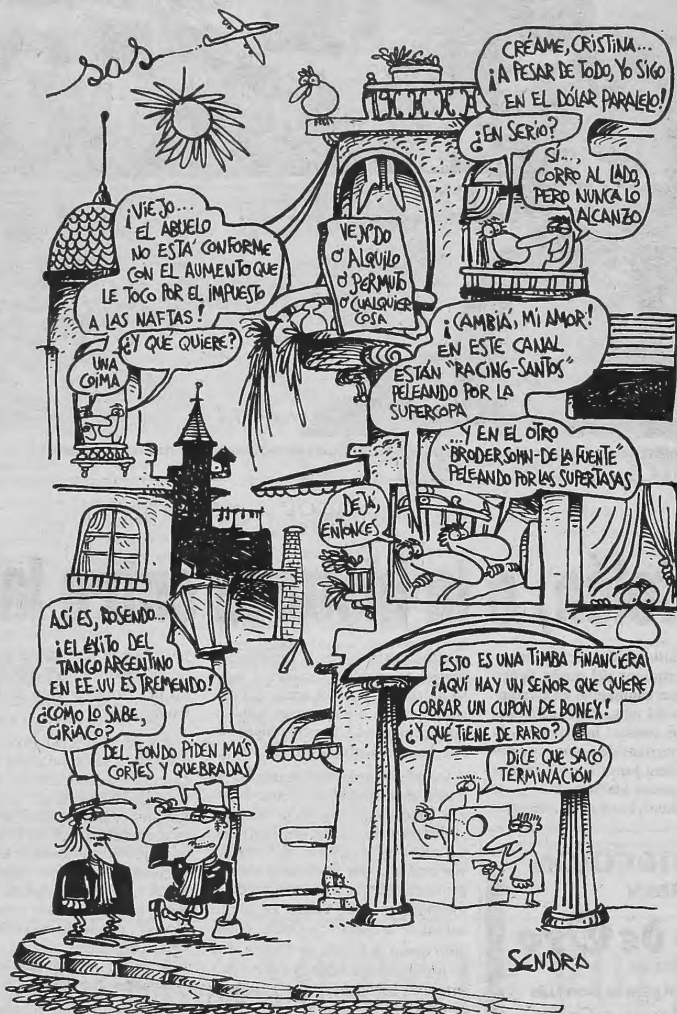 sas
CRÉAME, CRISTINA...
¡A PESAR DE TODO, YO SIGO
EN EL DÓLAR PARALELO!
¿EN SERIO?
SÍ...,
CORRO AL LADO,
PERO NUNCA LO
ALCANZO
¡VIEJO...
EL ABUELO
NO ESTÁ CONFORME
CON EL AUMENTO QUE
LE TOCO POR EL IMPUESTO
A LAS NAFTAS!
¿Y QUÉ QUIERE?
UNA
COIMA
VENDO
O' ALQUILO
O' PERMUTO
O' CUALQUIER
COSA
¡CAMBIÁ, MI AMOR!
EN ESTE CANAL
ESTÁN "RACING-SANTOS"
PELEANDO POR LA
SUPERCOPA
...Y EN EL OTRO
"BRODERSOHN-DE LA FUENTE"
PELEANDO POR LAS SUPERTASAS
DEJÁ,
ENTONCES
ASÍ ES, ROSENDO...
¡EL ÉXITO DEL
TANGO ARGENTINO
EN EE.UU ES TREMENDO!
¿CÓMO LO SABE,
CIRIACO?
DEL FONDO PIDEN MÁS
CORTES Y QUEBRADAS
ESTO ES UNA TIMBA FINANCIERA
¡AQUÍ HAY UN SEÑOR QUE QUIERE
COBRAR UN CUPÓN DE BONEX!
¿Y QUÉ TIENE DE RARO?
DICE QUE SACÓ
TERMINACIÓN
SENDRA